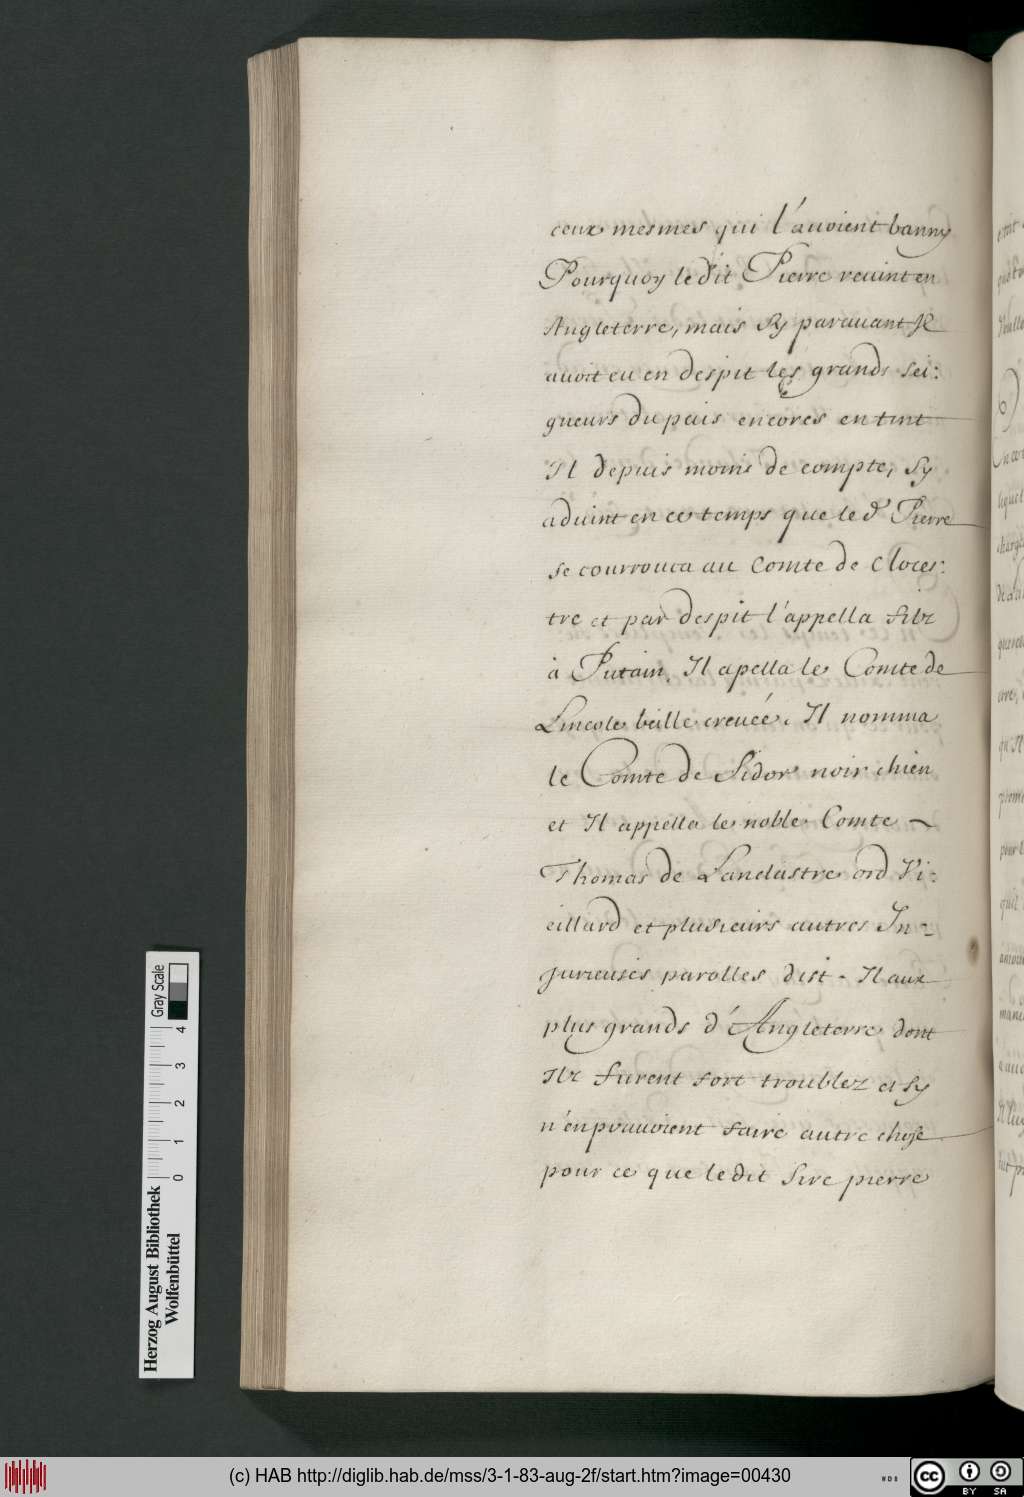 ceux mesmes qui l'auoient banny
Pourquoy ledit Pierre reuint en
Angleterre, mais sy parauant Il
auoit eu en despit les grands sei:
gneurs du pais encores en tint
Il depuis moins de compte, sy
aduint en ce temps que le d. Pierre
se courrouca au Comte de Cloces:
tre et par despit l'appella filz
à Putain. Il apella le Comte de
Lincole beille creuée. Il nomma
le Comte de Sidor noir chien
et Il appella le noble Comte ~
Thomas de Lanclastre ord Vi:
eillard et plusieurs autres In-
jurieuses parolles dist - Il aux
plus grands d'Angleterre dont
Ilz furent fort troublez et sy
n'en pouuoient faire autre chose
pour ce que ledit Sire pierre
Herzog August Bibliothek
Wolfenbüttel
0 1 2 3 4
Gray Scale
(c) HAB http://diglib.hab.de/mss/3-1-83-aug-2f/start.htm?image=00430
WDB
cc
BY SA